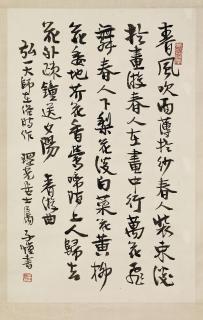 春風吹面薄於紗春人裝束淡
於畫遊春人在畫中行萬花飛
舞春人下梨花淡白菜花黃柳
花委地芥花香鶯啼陌上人歸去
花外踈鐘送夕陽 春遊曲
弘一大師在俗時作 居士屬 子愷書